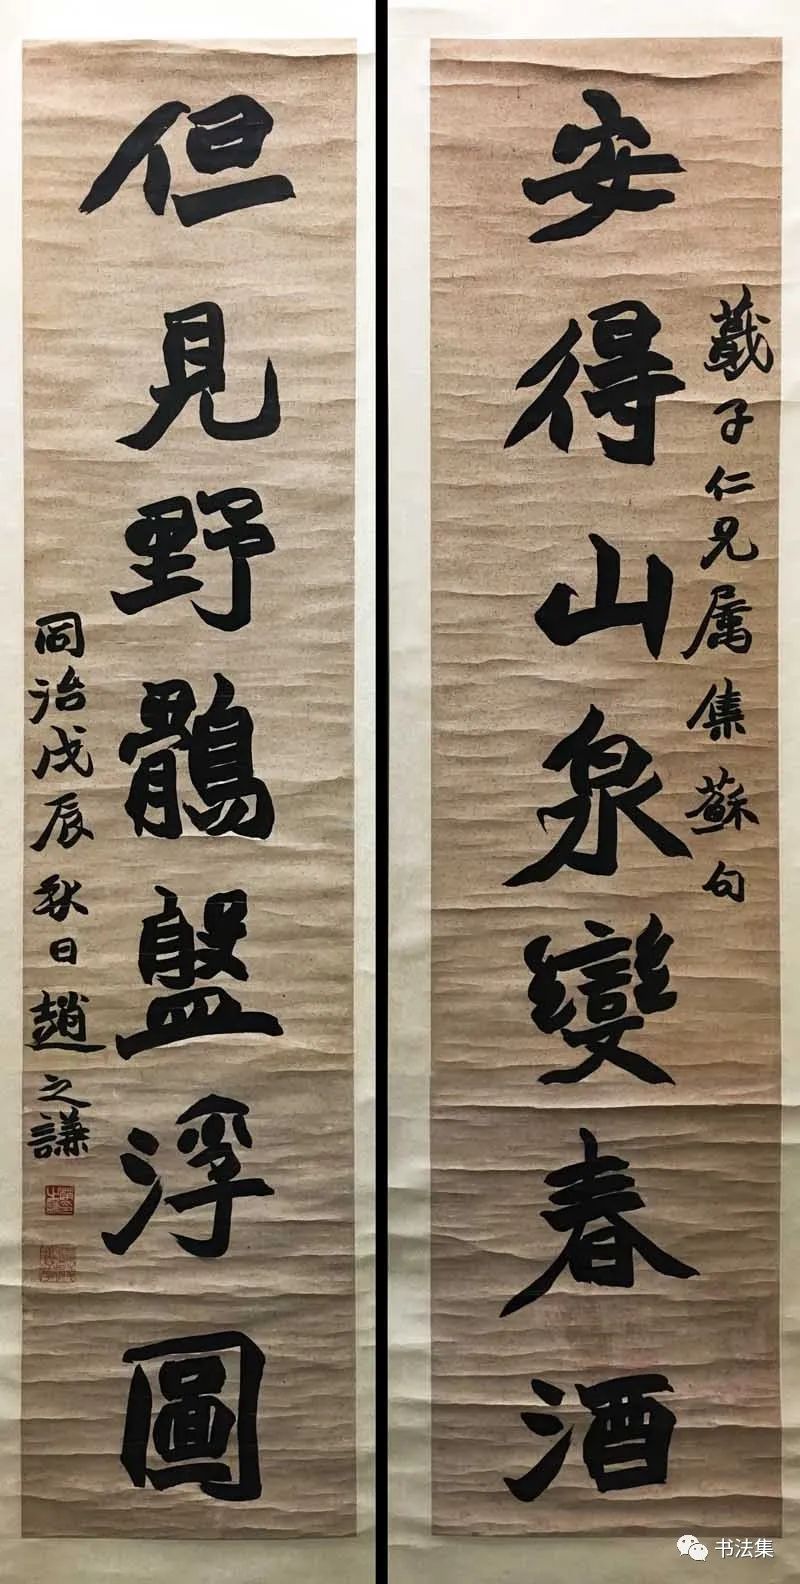 安得山泉變春酒
蕺子仁兄属集蘇句
但見野鶻盤浮圖
同治戊辰秋日趙之謙
书法集